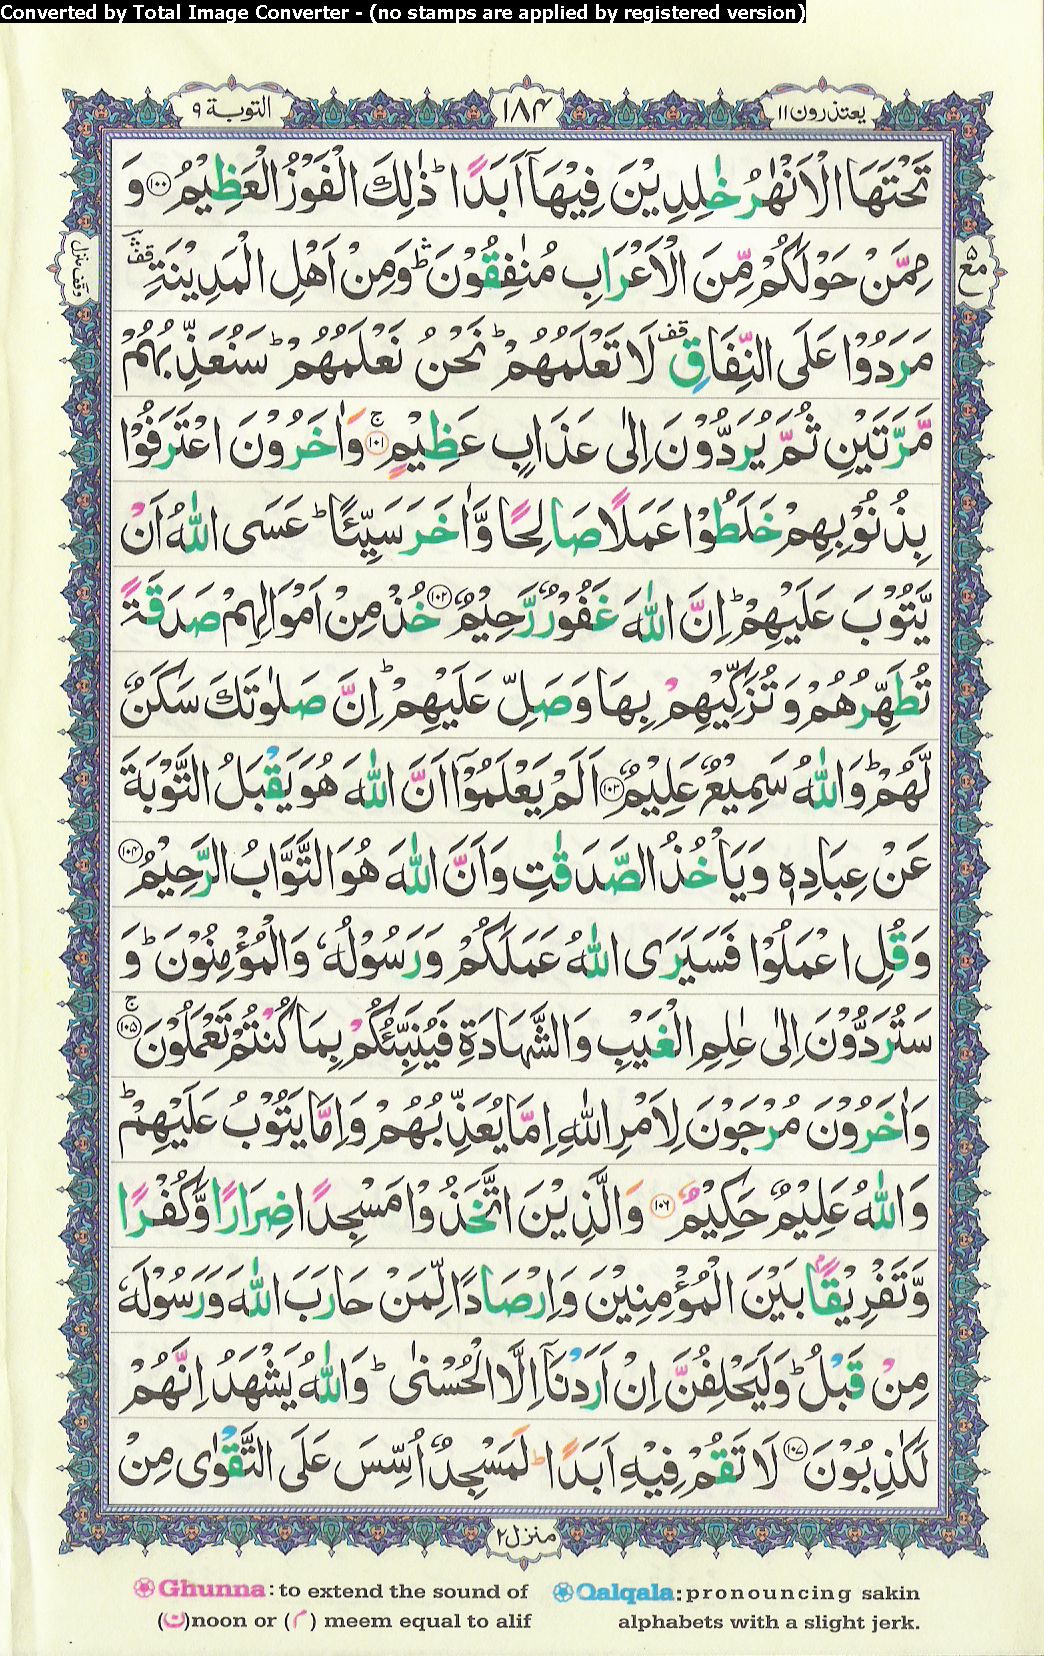 Converted by Total Image Converter - (no stamps are applied by registered version)
يعتذرون ١١
١٨٤
التوبة ٩
تَحْتَهَا الْاَنْهٰرُ خٰلِدِيْنَ فِيْهَاۤ اَبَدًا ؕ ذٰلِكَ الْفَوْزُ الْعَظِيْمُ ﴿۱۰۰﴾ وَ
مِمَّنْ حَوْلَكُمْ مِّنَ الْاَعْرَابِ مُنٰفِقُوْنَ ؕۛ وَمِنْ اَهْلِ الْمَدِيْنَةِ قف ۛ
مَرَدُوْا عَلَى النِّفَاقِ قف لَا تَعْلَمُهُمْ ؕ نَحْنُ نَعْلَمُهُمْ ؕ سَنُعَذِّبُهُمْ
مَّرَّتَيْنِ ثُمَّ يُرَدُّوْنَ اِلٰى عَذَابٍ عَظِيْمٍ ۚ ﴿۱۰۱﴾ وَاٰخَرُوْنَ اعْتَرَفُوْا
بِذُنُوْبِهِمْ خَلَطُوْا عَمَلًا صَالِحًا وَّاٰخَرَ سَيِّئًا ؕ عَسَى اللّٰهُ اَنْ
يَّتُوْبَ عَلَيْهِمْ ؕ اِنَّ اللّٰهَ غَفُوْرٌ رَّحِيْمٌ ﴿۱۰۲﴾ خُذْ مِنْ اَمْوَالِهِمْ صَدَقَةً
تُطَهِّرُهُمْ وَتُزَكِّيْهِمْ بِهَا وَصَلِّ عَلَيْهِمْ ؕ اِنَّ صَلٰوتَكَ سَكَنٌ
لَّهُمْ ؕ وَاللّٰهُ سَمِيْعٌ عَلِيْمٌ ﴿۱۰۳﴾ اَلَمْ يَعْلَمُوْۤا اَنَّ اللّٰهَ هُوَ يَقْبَلُ التَّوْبَةَ
عَنْ عِبَادِهٖ وَيَاْخُذُ الصَّدَقٰتِ وَاَنَّ اللّٰهَ هُوَ التَّوَّابُ الرَّحِيْمُ ﴿۱۰۴﴾
وَقُلِ اعْمَلُوْا فَسَيَرَى اللّٰهُ عَمَلَكُمْ وَرَسُوْلُهٗ وَالْمُؤْمِنُوْنَ ؕ وَ
سَتُرَدُّوْنَ اِلٰى عٰلِمِ الْغَيْبِ وَالشَّهَادَةِ فَيُنَبِّئُكُمْ بِمَا كُنْتُمْ تَعْمَلُوْنَ ۚ ﴿۱۰۵﴾
وَاٰخَرُوْنَ مُرْجَوْنَ لِاَمْرِ اللّٰهِ اِمَّا يُعَذِّبُهُمْ وَاِمَّا يَتُوْبُ عَلَيْهِمْ ؕ
وَاللّٰهُ عَلِيْمٌ حَكِيْمٌ ﴿۱۰۶﴾ وَالَّذِيْنَ اتَّخَذُوْا مَسْجِدًا ضِرَارًا وَّكُفْرًا
وَّتَفْرِيْقًۢا بَيْنَ الْمُؤْمِنِيْنَ وَاِرْصَادًا لِّمَنْ حَارَبَ اللّٰهَ وَرَسُوْلَهٗ
مِنْ قَبْلُ ؕ وَلَيَحْلِفُنَّ اِنْ اَرَدْنَاۤ اِلَّا الْحُسْنٰى ؕ وَاللّٰهُ يَشْهَدُ اِنَّهُمْ
لَكٰذِبُوْنَ ﴿۱۰۷﴾ لَا تَقُمْ فِيْهِ اَبَدًا ؕ لَمَسْجِدٌ اُسِّسَ عَلَى التَّقْوٰى مِنْ
مع ۵
وقف منزل
منزل ۲
Ghunna: to extend the sound of
(ن)noon or (م) meem equal to alif
Qalqala: pronouncing sakin
alphabets with a slight jerk.